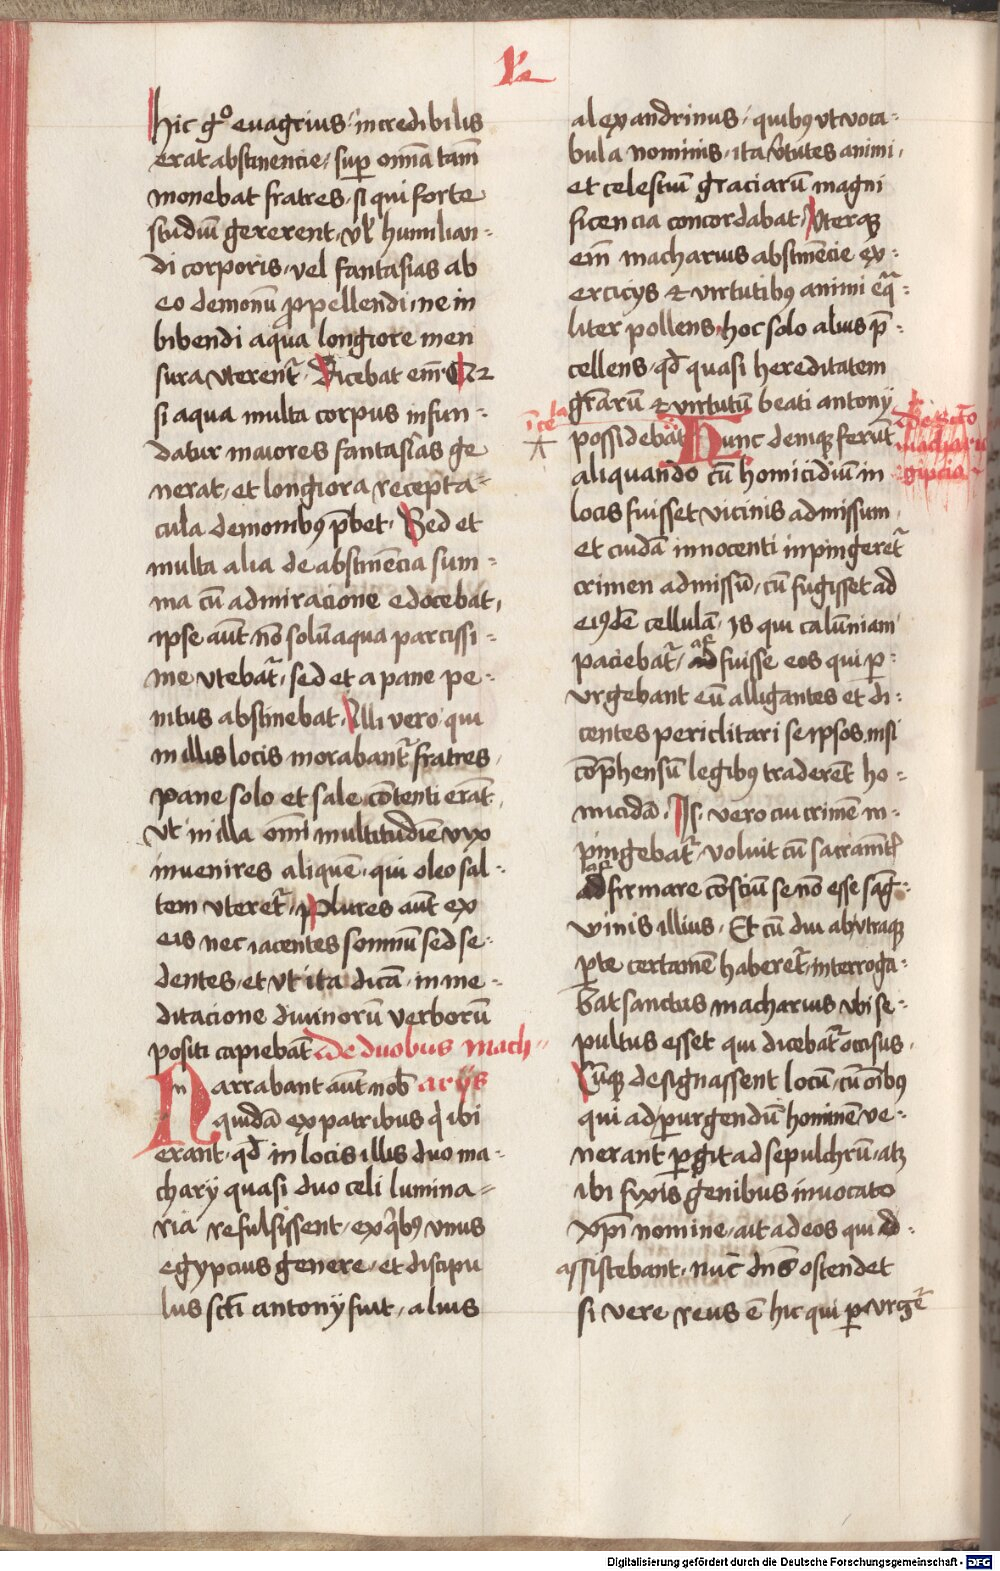 hic gͦ euagrius incredibilis
erat abstinencie / suꝑ om̄ia tam̄
monebat fratres / si qui forte
studiū gererent / vl̛ humilian⸗
di corporis / vel fantasias ab
eo demonū ꝓpellendi / ne in
bibendi aqua longiore men
sura vterent᷑ Dicebat em̄
si aqua multa corpus infun⸗
datur maiores fantasias ge
nerat / et longiora recepta⸗
cula demonibꝰ p̄bet / Sed et
multa alia de abstinēcia sum⸗
ma cū admiracione edocebat /
ipse aūt nō solū aqua parcissi⸗
me vtebat᷑ / sed et a pane pe⸗
nitus abstinebat / Illi vero qui
in illis locis morabant᷑ fratres /
pane solo et sale cōtenti erāt /
vt in illa om̄i multitudīe vix
inuenires aliquē / qui oleo sal⸗
tem vteret᷑ / Plures aūt ex
eis nec iacentes somnū sed se⸗
dentes / et vt ita dicā / in me⸗
ditacione diuinorū verborū
positi capiebāt De duobus mach⸗
Narrabant aūt nob̄ arijs
quidā ex patribus q̇ ibi
erant / qd̄ in locis illis duo ma⸗
charij quasi duo celi lumina⸗
ria refulsissent / ex q̇bꝰ vnus
egypcius genere / et discipu
lus sc̄ti antonij fuit / alius
alexandrinus / quibꝰ vt voca⸗
bula nominis / ita v̄tutes animi /
et celestiū graciarū magni
ficencia concordabat / Vterqꝫ
em̄ macharius abstinēcie ex⸗
ercicijs et virtutibꝰ animi eq̄⸗
liter pollens / hoc solo alius p̄⸗
cellens / qd̄ quasi hereditatem
gr̄arū et virtutū beati antonij
possidebat Hunc deniqꝫ ferūt
De sc̄to
machario
egipcio
aliquando cū homicidiū in
locis fuisset vicinis admissum /
et cuidā innocenti inpingeret᷑
crimen admissū / cū fugisset ad
eiꝰdē cellulā / is qui calūniam
paciebat᷑ / affuisse eos qui ꝑ⸗
vrgebant eū alligantes et di⸗
centes periclitari se ipsos nisi
cōp̄hensū legibꝰ traderēt ho⸗
micidā / Is vero cui crimē in⸗
pingebat᷑ / voluit cū sacramēt̉
affirmare cōsciū se nō esse sāg⸗
winis illius / Et cū diu ab vtraqꝫ
ꝑte certamē haberet᷑ / interroga⸗
bat sanctus macharius vbi se⸗
pultus esset qui dicebat᷑ occisus /
Cūqꝫ designassent locū / cū oībꝰ
qui ad ꝑurgendū hominē ve⸗
nerant ꝑgit ad sepulchrū / atqꝫ
ibi fixis genibus inuocato
xp̄i nomine / ait ad eos qui
assistebant / nūc dn̄s ostendet
si vere reus ē hic qui ꝑ vrget᷑
Digitalisierung gefördert durch die Deutsche Forschungsgemeinschaft - DFG